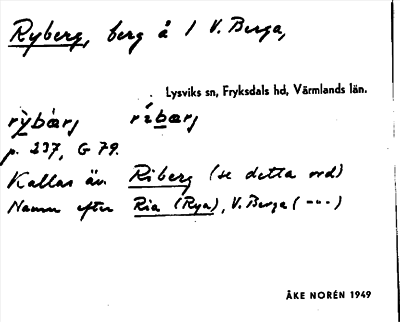 Ryberg, berg å / V. Berga,
Lysviks sn, Fryksdals hd, Värmlands län.
rỳbærj ríbærj
p. 237, G 79.
Kallas äv. Riberg (se detta ord)
Namn efter Ria (Rya), V. Berga (---)
ÅKE NORÉN 1949